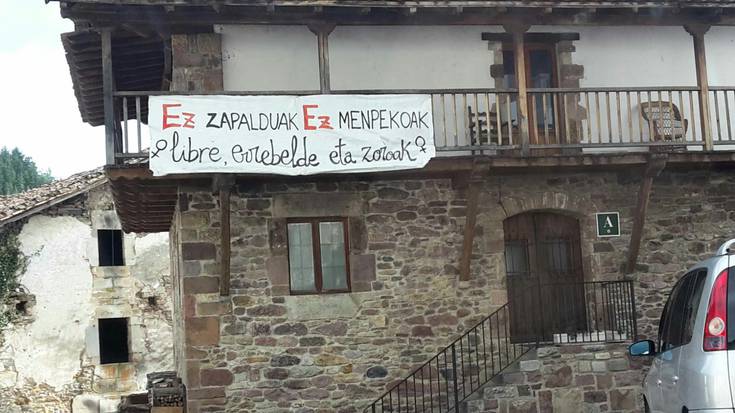 Ez ZAPALDUAK Ez MENPEKOAK
♀libre, errebelde eta zoroak♀
A